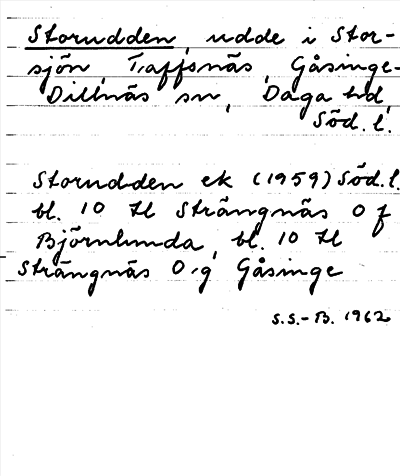 Storudden, udde i Stor-
sjön, Taffsnäs, Gåsinge-
Dillnäs sn, Daga hd,
Söd. l.
Storudden ek (1959) Söd. l.
bl. 10 H Strängnäs O f
Björnlunda, bl. 10 H
Strängnäs O g Gåsinge
S.S.-B. 1962